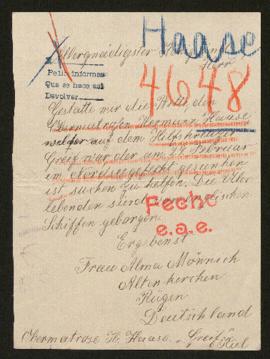 Allergnädigster
Herr
Haase
4648
Pelig informes
Que se hace asi
Devolver
Gestatte mir die Bitte den
Obermatrosen Hermann Haase
welcher auf dem Hilfskreuzer
Greif war der am 29 Februar
im Nordseegefecht gesunken
ist suchen zu helfen. Die Über
lebenden sind
Schiffen geborgen.
Feche
e.a.e.
Ergebenst
Frau Alma Mönnich
Altenkirchen
Rügen
Deutschland
Obermatrose H. Haase "Greif"
Kiel